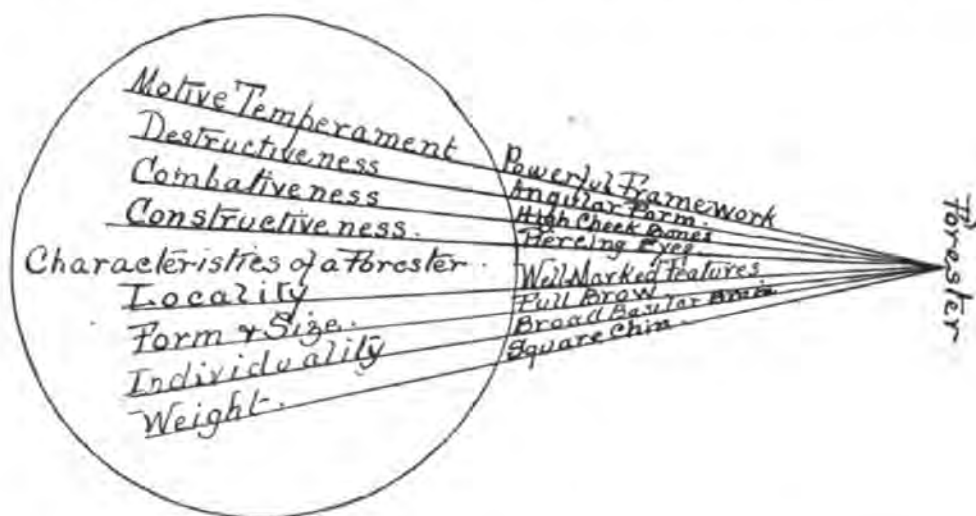 Motive Temperament
Destructiveness
Combativeness
Constructiveness.
Characteristics of a Forester.
Locality
Form & Size.
Individuality
Weight.
Powerful Framework
Angular Form.
High Cheek Bones
Piercing Eyes
Well-Marked Features
Full Brow
Broad Basilar Brain
Square Chin
The
Forester